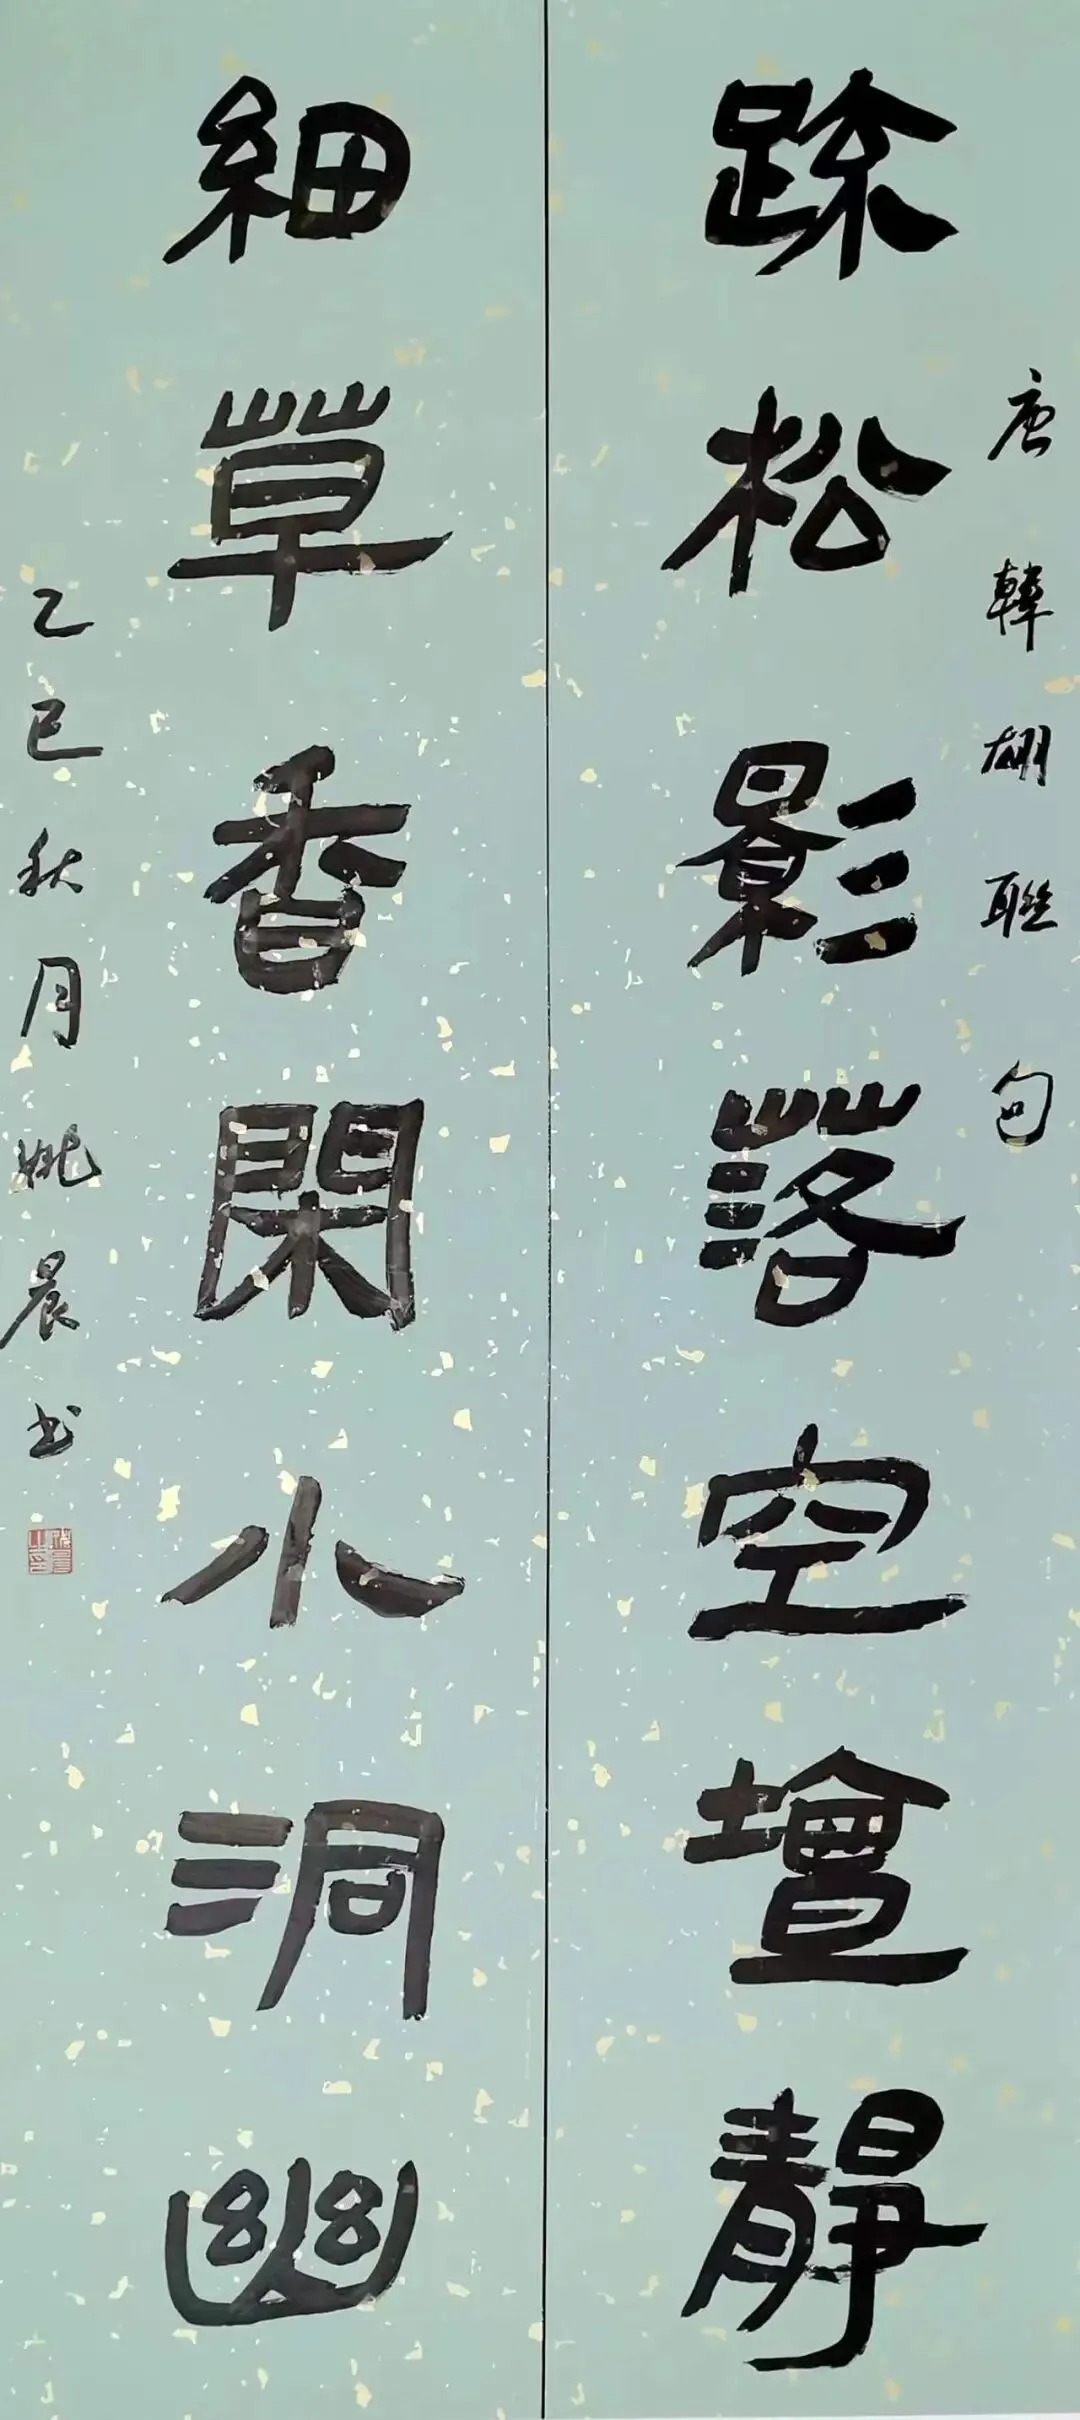 唐韓翃聯句
踈松影落空壇靜
細草香閑小洞幽
乙巳秋月姚晨书